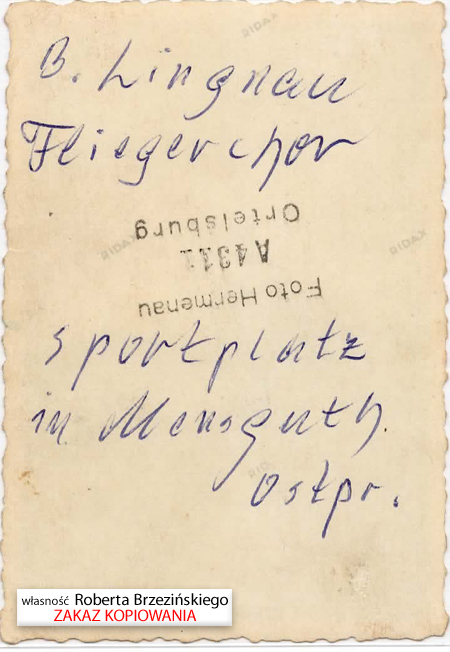 B. Lingnau
Fliegerchor
Ortelsburg
A4311
Foto Hermenau
Sportplatz
in Mensguth.
Ostpr.
RIDAX
RIDAX
RIDAX
RIDAX
własność Roberta Brzezińskiego
ZAKAZ KOPIOWANIA